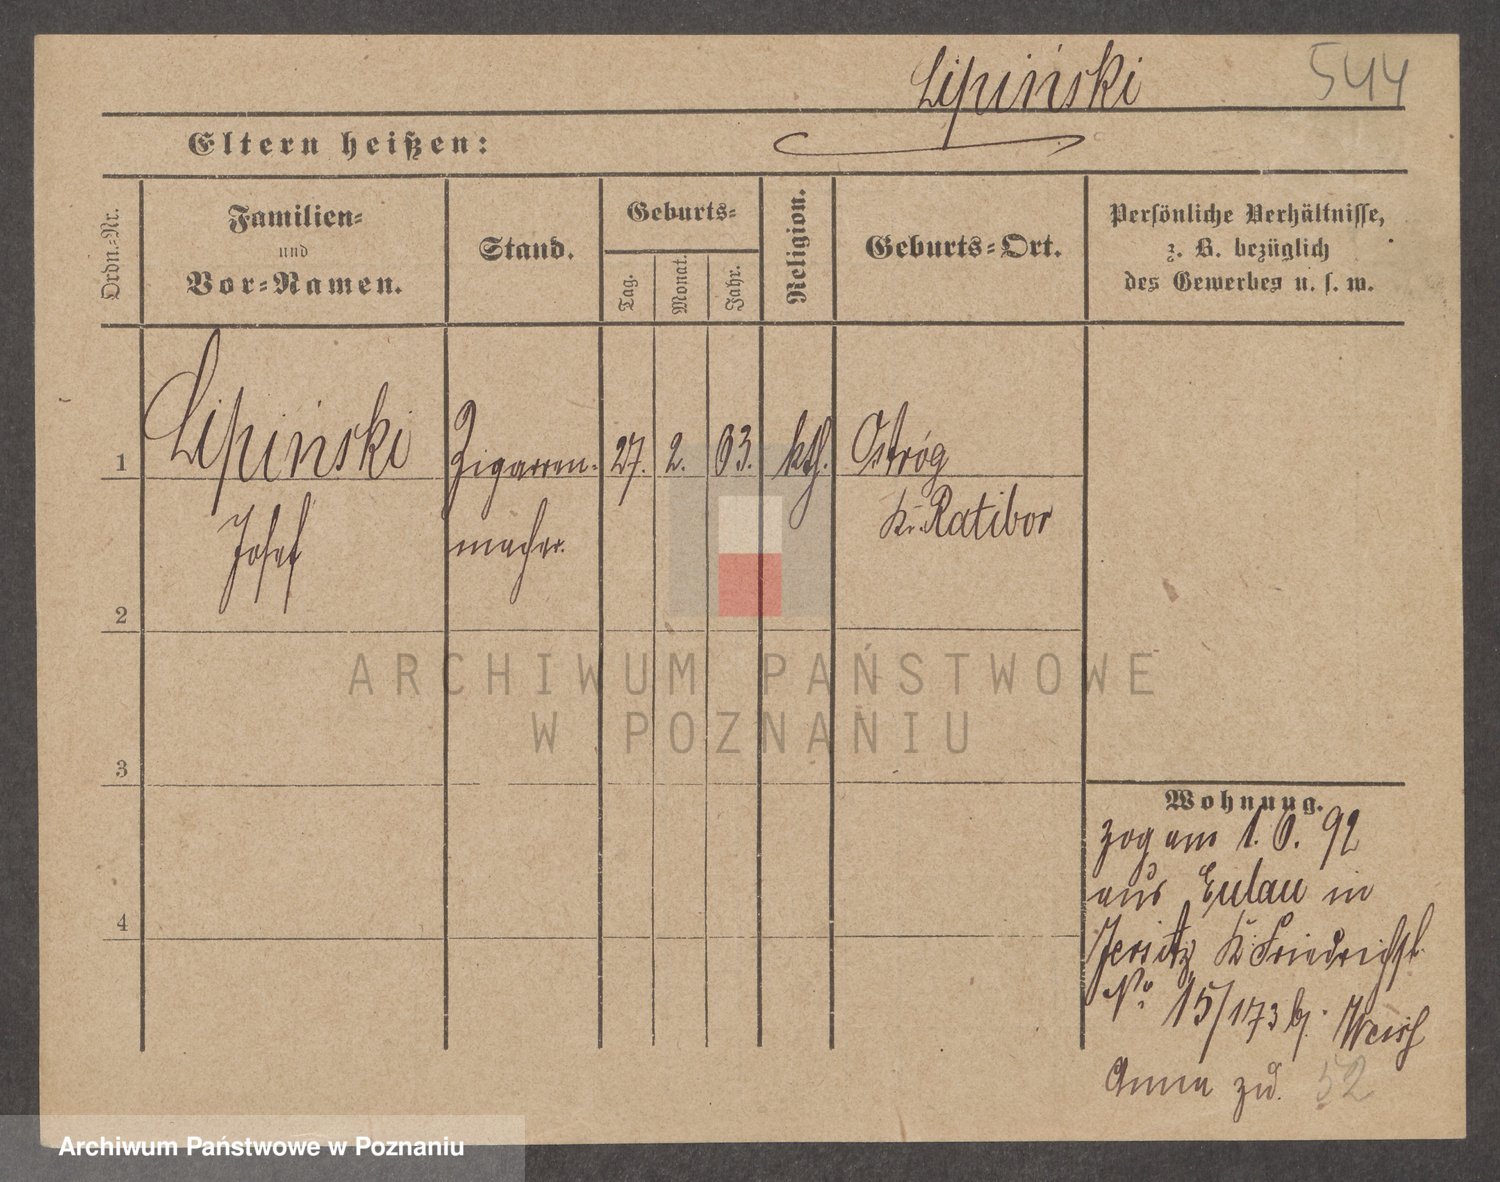 Lipiński 544
Eltern heißen:
Ordn.-Nr.
Familien-
und
Vor-Namen.
Stand.
Geburts-
Tag.
Monat.
Jahr.
Religion.
Geburts-Ort.
Persönliche Verhältnisse,
z. B. bezüglich
des Gewerbes u. s. w.
1 Lipiński Zigarren- 27. 2. 63. kth. Ostróg
Josef macher. Kr. Ratibor
2
3
4
Wohnung.
zog am 1. 6. 92
aus Eulau in
Jersitz K. Friedrichst.
No 15/173 b.
Anna zu. 52
ARCHIWUM PAŃSTWOWE
W POZNANIU
Archiwum Państwowe w Poznaniu